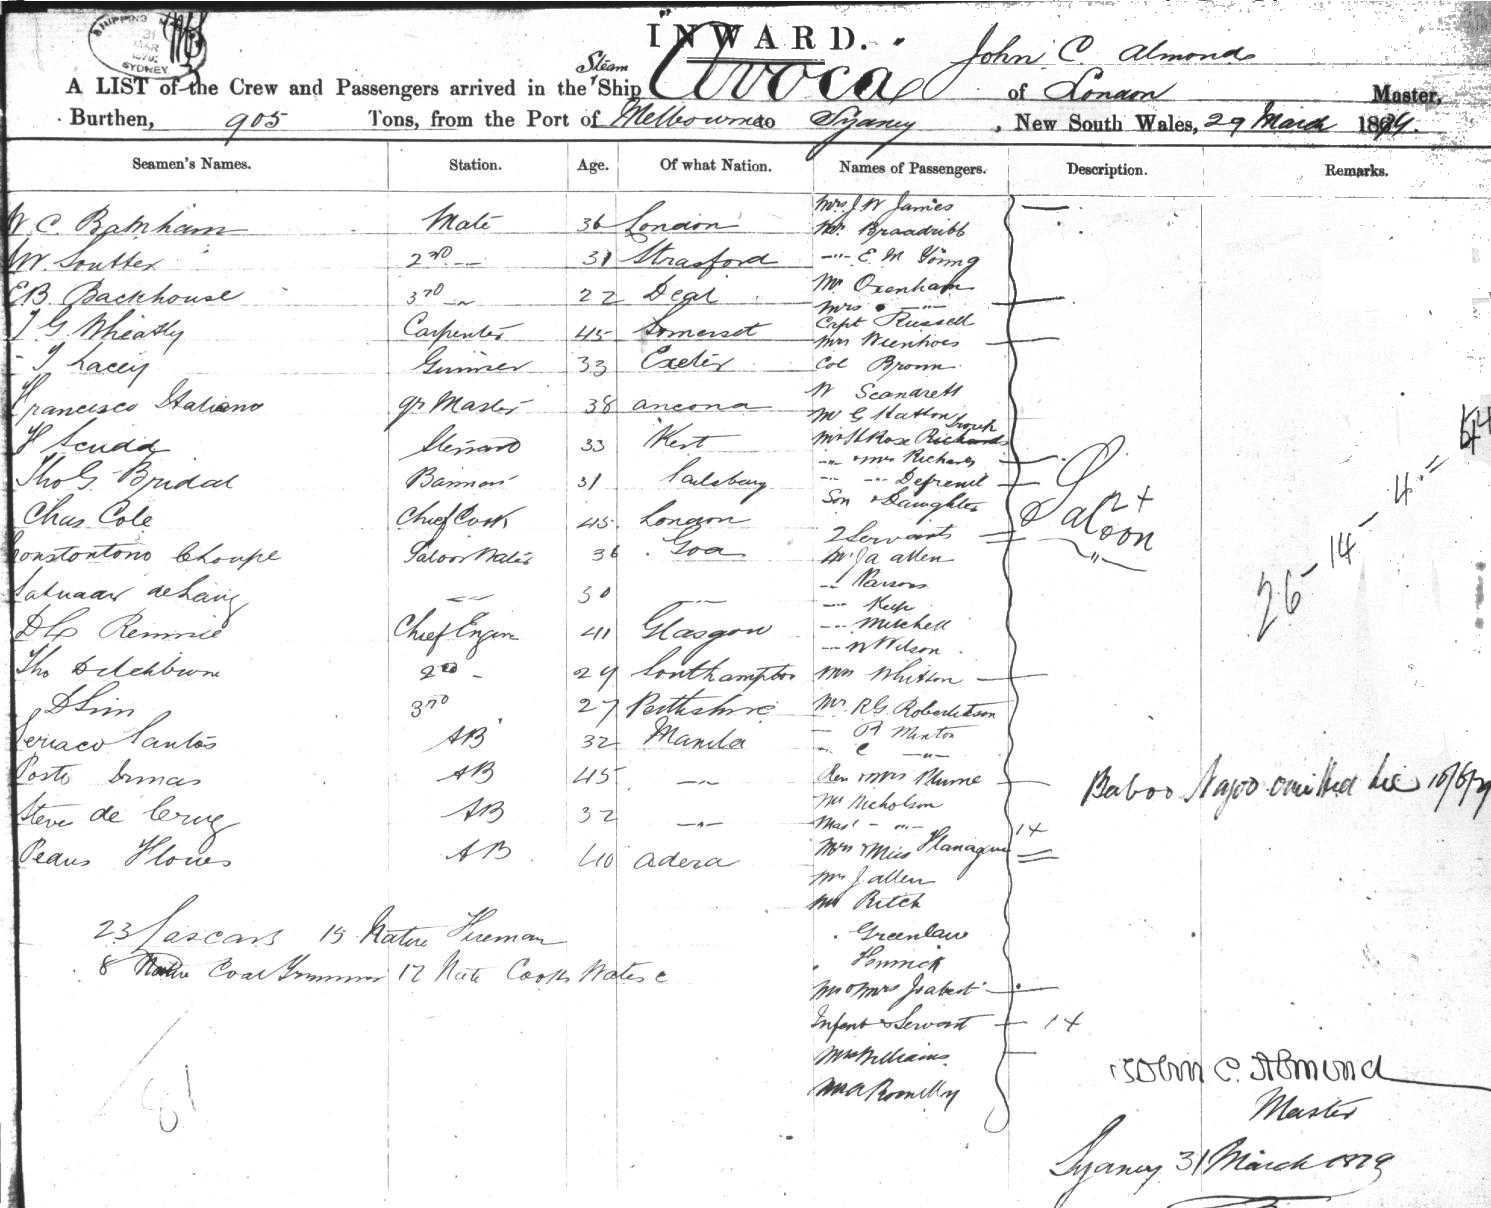 SHIPPING MASTER
31
MAR
1879
SYDNEY
INWARD.
John C. Almond
Steam
A LIST of the Crew and Passengers arrived in the Ship Avoca of London Master,
Burthen, 905 Tons, from the Port of Melbourne to Sydney, New South Wales, 29 March 1879.
Seamen's Names. Station. Age. Of what Nation. Names of Passengers. Description. Remarks.
W. C. Barnham Mate 36 London
W. Soutter 2nd 31 Strasford
E B. Backhouse 3rd 22 Deal
T G Wheatly Carpenter 45 Somerset
T Lacey Gunner 33 Exeter
Francisco Italiano Qr Master 38 Ancona
H Scudd Steward 33 Kent
Tho G. Bridal 31 Salsbury
Chas Cole Chief Cook 45 London
Constontono Choupe Saloon Waiter 36 Goa
30
D Rennie Chief Engin 41 Glasgow
Tho Ditchburn 2nd 29 Southampton
D Sim 3rd 27 Perthshire
Santos AB 32 Manila
AB 45
Steve de Cruz AB 32
Pedus Flores AB 40 Adera
23 Lascars 15 Native Fireman
8 Native Coal Trimmers 12 Nate Cooks Waters c
81
Mrs J W James
Mr Broadribb
E. M Young
Mr Oxenham
Mrs
Capt Russell
Mrs Wienhoes
Col Brown
W Scandrett
Mr G Hatton
Mr H Rose Richards
Mrs Richards
Defreuil
Son & Daughter
2 Servants
Mr Ja Allen
Parsons
Keep
Mitchell
W Wilson
Mrs Whitson
Mr R G Robertson
R Minton
C
Rev & Mrs Plume
Mr Nicholson
Mast
Mrs & Miss Flanagan 14
Mrs J Allen
Mr Ritch
Greenlaw
Mr & Mrs Joubert
Infant & Servant 14
Mrs Williams
Romilly
24
Saloon
26 - 14 - 4 44
Baboo Nagoo omitted
John C. Almond
Master
Sydney 31 March 1879